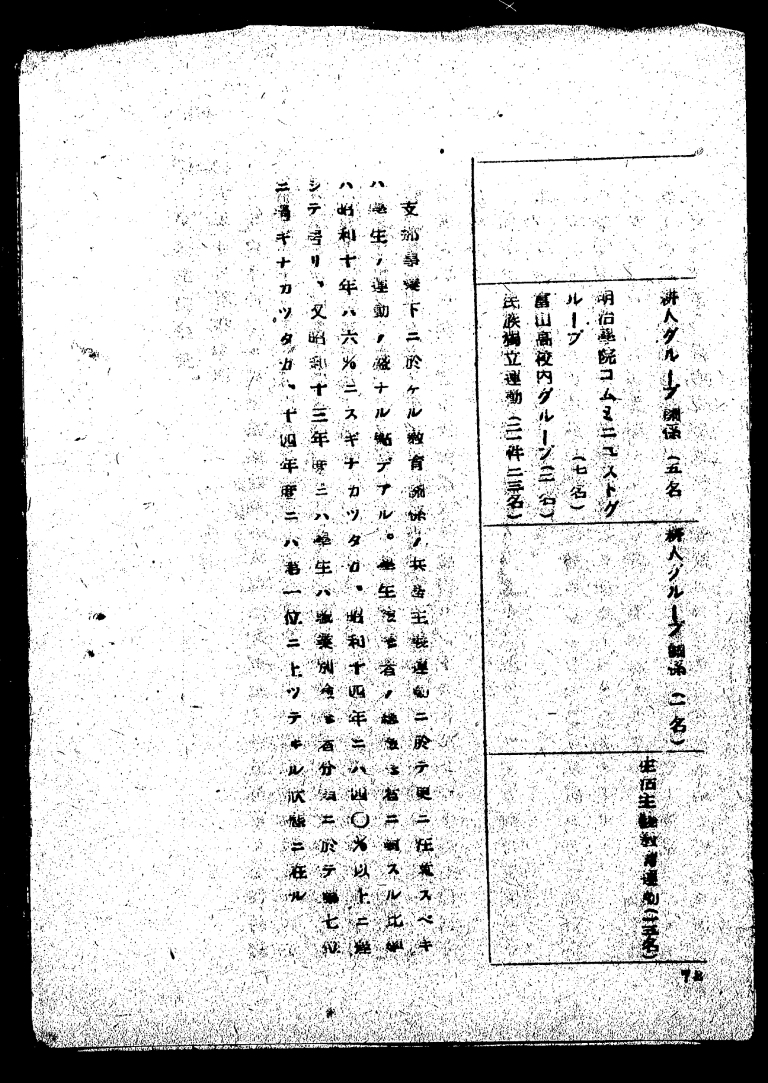 耕人グループ關係（五名
明治學院コムミニユストグ
ループ（七名）
富山高校内グループ（二名）
民族獨立運動（二一件二三名）
耕人グループ關係（一名）
生活主義教育運動（一三名）
支那事變下ニ於ケル教育關係ノ共產主義運動ニ於テ更ニ注意スベキ
ハ學生ノ運動ノ盛ナル點デアル。學生檢擧者ノ總檢擧者ニ對スル比率
ハ昭和十年ハ六％ニスギナカツタガ、昭和十四年ニハ四〇％以上ニ達
シテ居リ、又昭和十三年度ニハ學生ハ職業別檢擧者分類ニ於テ第七位
ニ過ギナカツタガ、十四年度ニハ第一位ニ上ツテヰル狀態ニ在ル